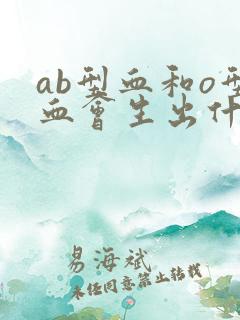 ab型血和o型
血會生出什
易海斌
未经同意禁止转载